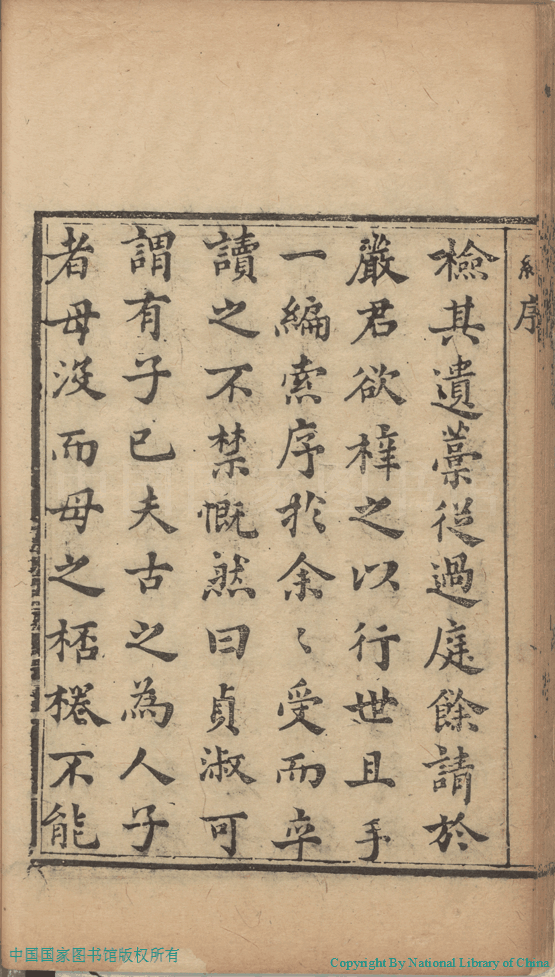 序
檢其遺藁從過庭餘請於
嚴君欲梓之以行世且手
一編索序於余〻受而卒
讀之不禁慨然曰貞淑可
謂有子已夫古之為人子
者母沒而母之桮棬不能
中国国家图书馆版权所有
Copyright By National Library of China